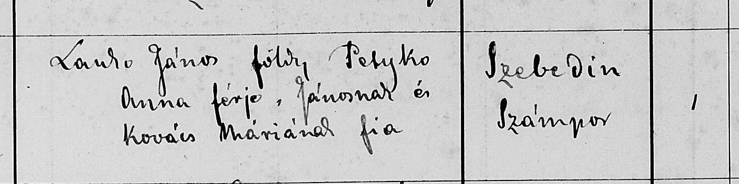 Lauko János földm Petyko
Anna férje, Jánosnak és
Kovács Máriának fia
Szebedin
Számpor
1